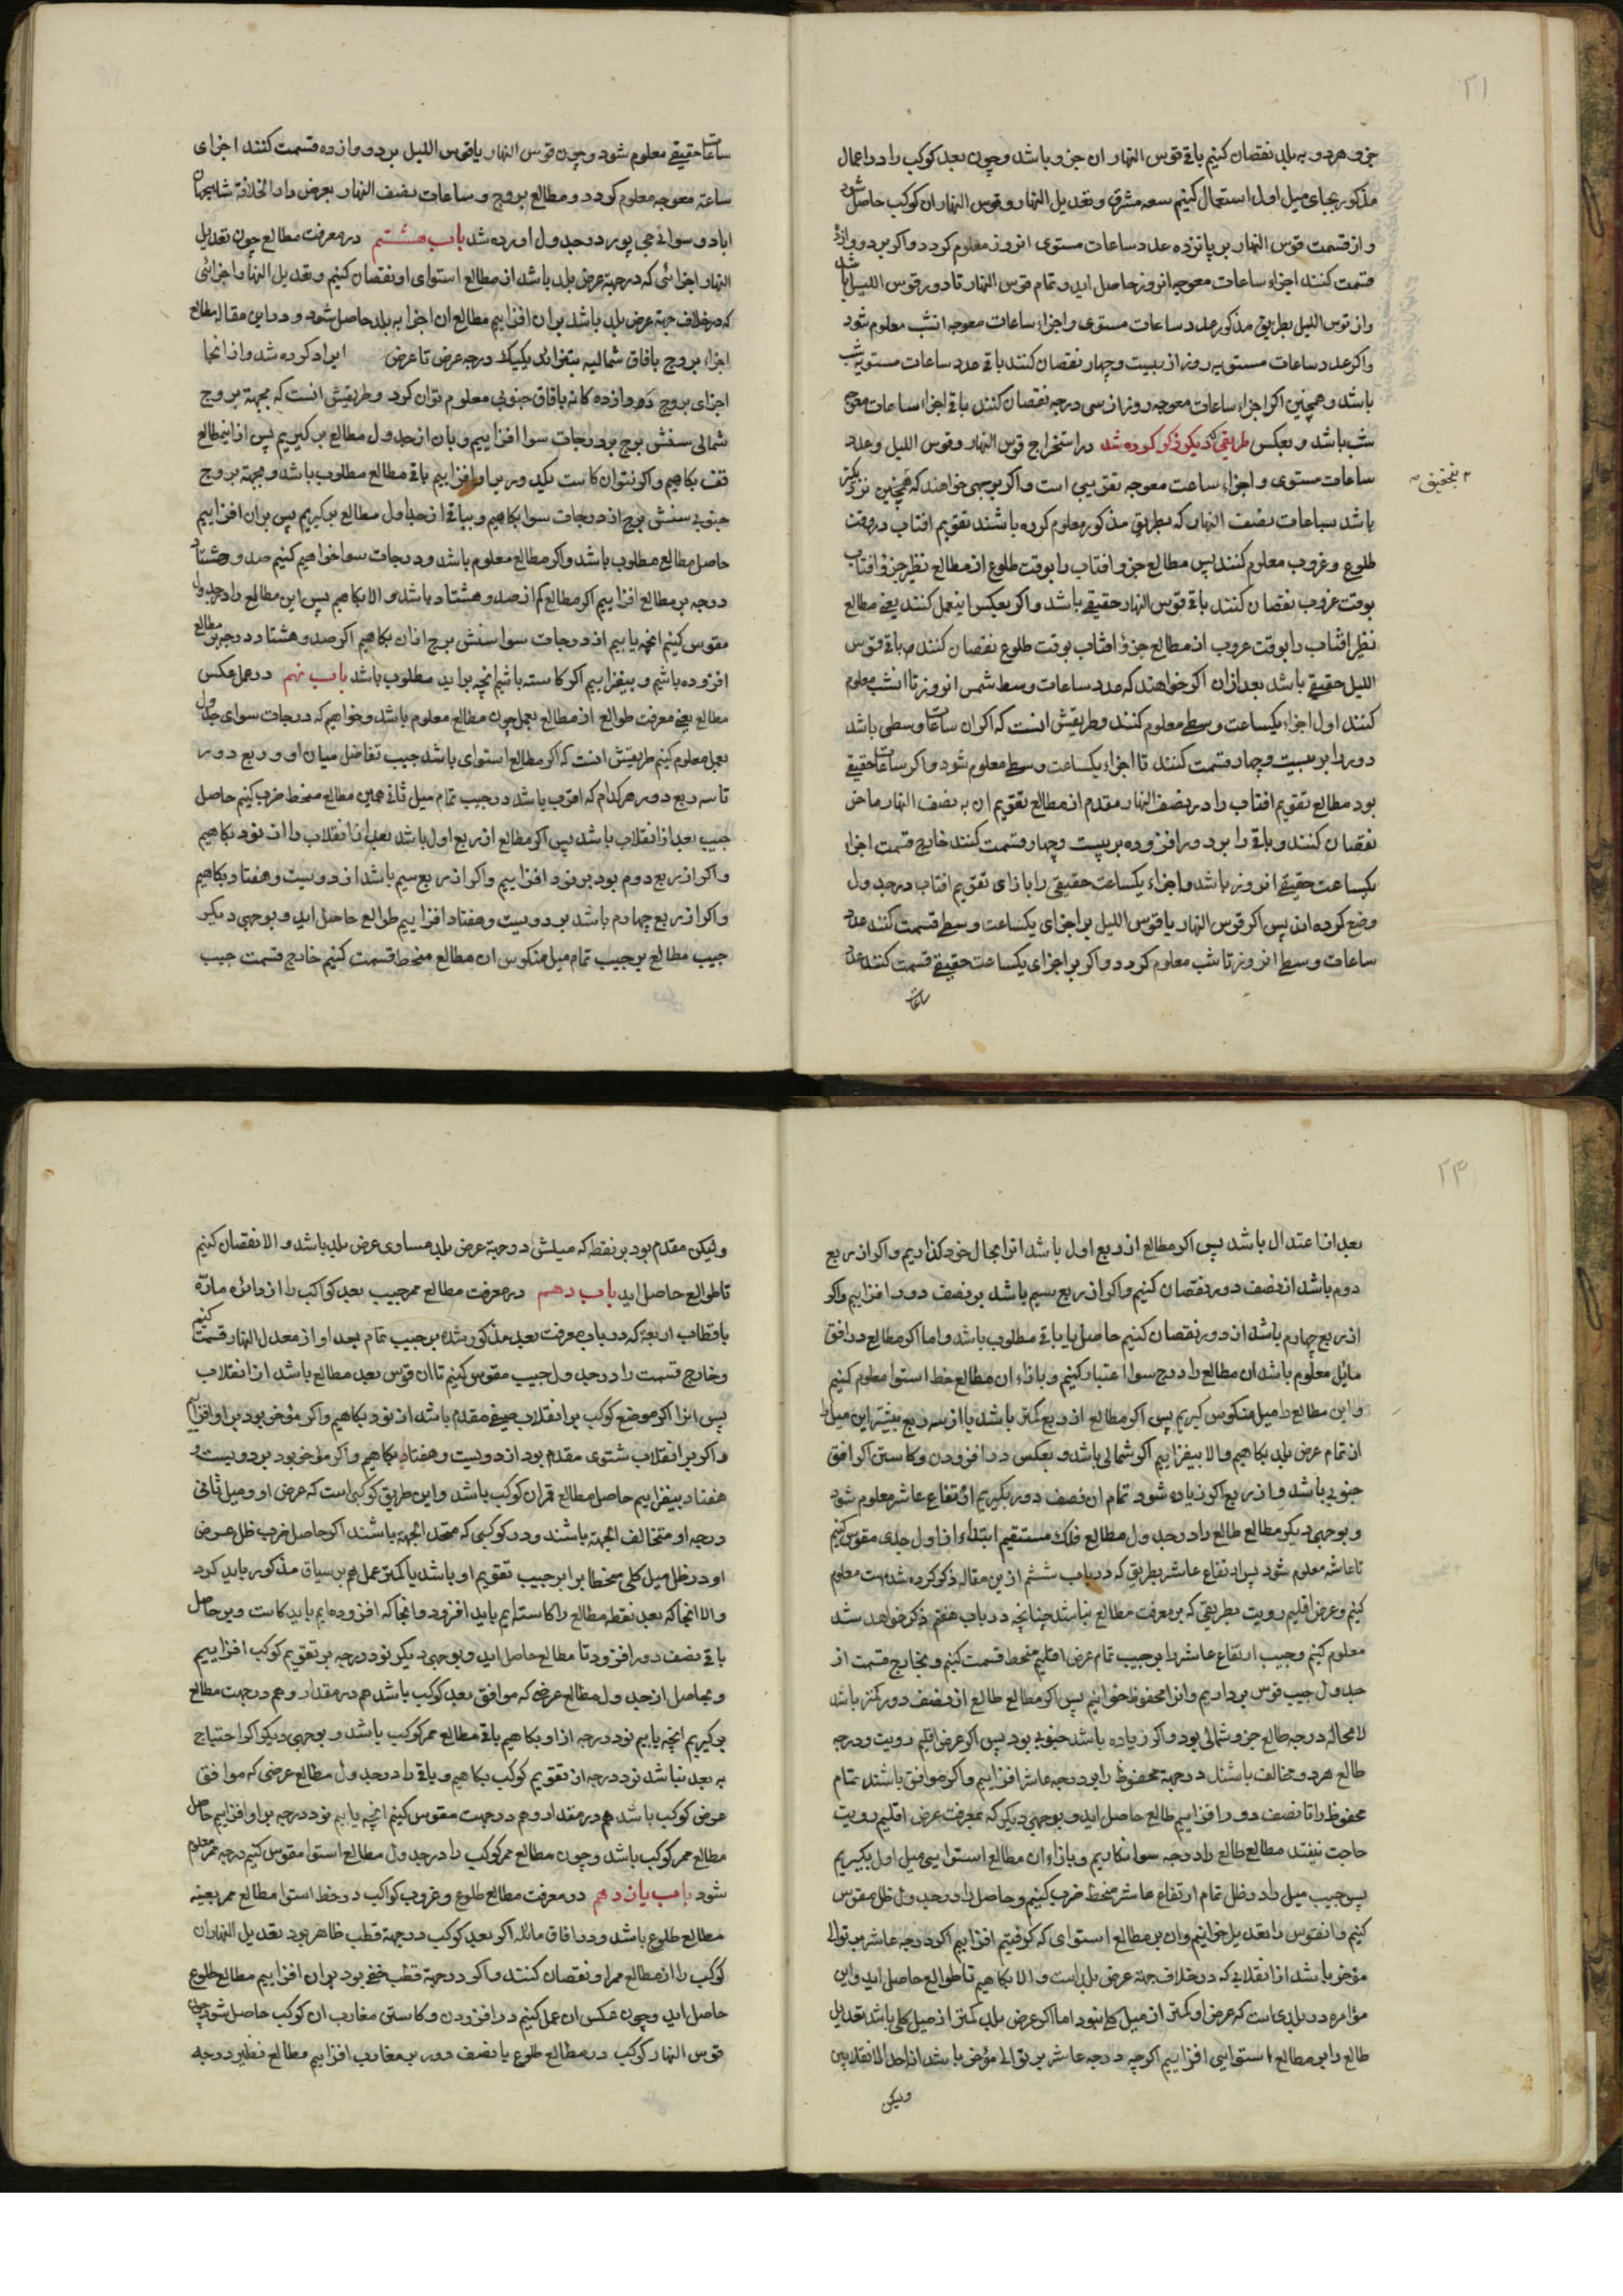 ۲۱
جزو هر دو به بلد نقصان کنیم باقی قوس النهار ان جزو باشد و چون بعد کوکب را در اعمال
مذکور بجای میل اول استعمال کنیم سعه مشرق و تعدیل النهار و قوس النهار ان کوکب حاصل شود
و از قسمت قوس النهار بر پانزده عدد ساعات مستوی انروز معلوم کردد و اکر بر دوازده
قسمت کنند اجزاء ساعات معوجه انروز حاصل اید و تمام قوس النهار تا دور قوس اللیل باشد
و از قوس اللیل بطریق مذکور عدد ساعات مستوی و اجزاء ساعات معوجه انشب معلوم شود
و اکر عدد ساعات مستویه روز از بیست و چهار نقصان کنند باقی عدد ساعات مستویه شب
باشد و همچنین اکر اجزاء ساعات معوجه روز از سی درجه نقصان کنند باقی اجزاء ساعات معوجه
شب باشد و بعکس طریقی که دیکر ذکر کرده شد در استخراج قوس النهار و قوس اللیل و عدد
ساعات مستوی و اجزاء ساعت معوجه تقریبی است و اکر بوجهی خواهند که بتحقیق نزدیکتر
باشد ساعات نصف النهار که بطریق مذکور معلوم کرده باشند تقویم افتاب در وقت
طلوع و غروب معلوم کنند پس مطالع جزو افتاب را بوقت طلوع از مطالع نظیر جزو افتاب
بوقت غروب نقصان کنند باقی قوس النهار حقیقی باشد و اکر بعکس اینعمل کنند یعنی مطالع
نظیر افتاب را بوقت غروب از مطالع جزو افتاب بوقت طلوع نقصان کنند باقی قوس
اللیل حقیقی باشد بعد ازان اکر خواهند که عدد ساعات وسط شمس انروز تا انشب معلوم
کنند اول اجزاء یکساعت وسطی معلوم کنند و طریقش انست که اکر ان ساعات وسطی باشد
دور را بر بیست و چهار قسمت کنند تا اجزاء یکساعت وسطی معلوم شود و اکر ساعات حقیقی
بود مطالع تقویم افتاب را در نصف النهار مقدم از مطالع تقویم ان به نصف النهار ماخر
نقصان کنند و باقی را بر دور افزوده بر بیست و چهار قسمت کنند خارج قسمت اجزاء
یکساعت حقیقی انروز باشد و اجزاء یکساعت حقیقی را بازای تقویم افتاب در جدول
وضع کرده اند پس اکر قوس النهار یا قوس اللیل بر اجزای یکساعت وسطی قسمت کنند عدد
ساعات وسطی انروز تا شب معلوم کردد و اکر بر اجزای یکساعت حقیقی قسمت کنند عدد
ساعات
ساعات حقیقی معلوم شود و چون قوس النهار یا قوس اللیل بر دوازده قسمت کنند اجزای
ساعة معوجه معلوم کردد و مطالع بروج و ساعات نصف النهار بعرض دار الخلافة شاهجهان
اباد و سوائی جی پور در جدول اورده شد باب هشتم در معرفت مطالع چون تعدیل
النهار اجزائی که در جهة عرض بلد باشد از مطالع استوای او نقصان کنیم و تعدیل النهار اجزائی
که در خلاف جهة عرض بلد باشد بران افزاییم مطالع ان اجزا به بلد حاصل شود و در این مقاله مطالع
اجزاء بروج بافاق شمالیه بتفزائد یکیک درجه عرض تا عرض ایراد کرده شد و از انجا
اجزای بروج دوازده کانه بافاق جنوبی معلوم توان کرد و طریقش انست که بجهة بروج
شمالی سش برج بر درجات سوا افزاییم و بان از جدول مطالع بر کیریم پس از اینمطالع
قف بکاهیم و اکر نتوان کاست یکدور بر او افزاییم باقی مطالع مطلوب باشد و بجهة بروج
جنوبی شش برج از درجات سوا بکاهیم و بباقی از جداول مطالع بر کیریم پس بران افزاییم
حاصل مطالع مطلوب باشد و اکر مطالع معلوم باشد و درجات سوا خواهیم کنیم صد و هشتاد
درجه بر مطالع افزاییم اکر مطالع کم از صد و هشتاد باشد و الا بکاهیم پس این مطالع را در جدول
مقوس کنیم انچه یابیم از درجات سوا شش برج ازان بکاهیم اکر صد و هشتاد درجه بر مطالع
افزوده باشیم و بیفزاییم اکر کاسته باشیم انچه براید مطلوب باشد باب نهم در عمل عکس
مطالع یعنی معرفت طوالع از مطالع بعمل چون مطالع معلوم باشد و خواهیم که درجات سوای جدول
بعمل معلوم کنیم طریقش انست که اکر مطالع استوای باشد جیب تفاضل میان او و ربع دور
تا سه ربع دور هر کدام که اقرب باشد در جیب تمام میل ثانی همین مطالع منحط ضرب کنیم حاصل
جیب بعد از انقلاب باشد پس اکر مطالع از ربع اول باشد بعد از انقلاب را از نود بکاهیم
و اکر از ربع دوم بود بر نود افزاییم و اکر از ربع سیم باشد از دویست و هفتاد بکاهیم
و اکر از ربع چهارم باشد بر دویست و هفتاد افزاییم طوالع حاصل اید و بوجهی دیکر
جیب مطالع بر جیب تمام میل منکوس ان مطالع منحط قسمت کنیم خارج قسمت جیب
۲۳
بعد از اعتدال باشد پس اکر مطالع از ربع اول باشد انرا بحال خود کذاریم و اکر از ربع
دوم باشد از نصف دور نقصان کنیم و اکر از ربع سیم باشد بر نصف دور افزاییم و اکر
از ربع چهارم باشد از دور نقصان کنیم حاصل یا باقی مطلوب باشد و اما اکر مطالع در افق
مائل معلوم باشد ان مطالع را درج سوا اعتبار کنیم و بازاء ان مطالع خط استوا معلوم کنیم
و این مطالع را میل منکوس کیریم پس اکر مطالع از ربع کمتر باشد یا از سه ربع بیشتر این میل را
از تمام عرض بلد بکاهیم و الا بیفزاییم اکر شمالی باشد و بعکس در افزودن و کاستن اکر افق
جنوبی باشد و از ربع اکر زیاده شود تمام ان نصف دور بکیریم ارتفاع عاشر معلوم شود
و بوجهی دیکر مطالع طالع را در جدول مطالع فلک مستقیم ابتداء از اول جدی مقوس کنیم
تا عاشر معلوم شود پس ارتفاع عاشر بطریقی که در باب ششم از ین مقاله ذکر کرده شده است معلوم
کنیم و عرض اقلیم رویت بطریقی که بر معرفت مطالع نباشد چنانچه در باب هفتم ذکر خواهد شد
معلوم کنیم و جیب ارتفاع عاشر را بر جیب تمام عرض اقلیم منحط قسمت کنیم و بخارج قسمت از
جدول جیب قوس برداریم و انرا محفوظ خوانیم پس اکر مطالع طالع از نصف دور کمتر باشد
لا محاله درجه طالع جزو شمالی بود و اکر زیاده باشد جنوبی بود پس اکر عرض اقلیم رویت و درجه
طالع هر دو مخالف باشند در جهة محفوظ را بر درجه عاشر افزاییم و اکر موافق باشند تمام
محفوظ را تا نصف دور افزاییم طالع حاصل اید و بوجهی دیکر که بمعرفت عرض اقلیم رویت
حاجت نیفتد مطالع طالع را درجه سوا انکاریم و بازاء ان مطالع استوایی میل اول بکیریم
پس جیب میل را در ظل تمام ارتفاع عاشر منحط ضرب کنیم و حاصل را در جدول ظل مقوس
کنیم و انقوس را تعدیل خوانیم و ان بر مطالع استوای که کرفتیم افزاییم اکر درجه عاشر بتوالی
مؤخر باشد از انقلابی که در خلاف جهة عرض بلد است و الا بکاهیم تا طوالع حاصل اید و این
مؤامره در بلدی است که عرض او کمتر از میل کلی نبود اما اکر عرض بلد کمتر از میل کلی باشد تعدیل
طالع را بر مطالع استوایی افزاییم اکر چه درجه عاشر بر توالی مؤخر باشد از احد الانقلابین
ولیکن
ولیکن مقدم بود بر نقطه که میلش در جهة عرض بلد مساوی عرض بلد باشد و الا نقصان کنیم
تا طوالع حاصل اید باب دهم در معرفت مطالع ممر جیب بعد کواکب را از دائره مارّه
باقطاب اربعة که در باب معرفت بعد مذکور شده بر جیب تمام بعد او از معدل النهار قسمت کنیم
و خارج قسمت را در جدول جیب مقوس کنیم تا ان قوس بعد مطالع باشد از انقلاب
پس انرا اکر موضع کوکب بر انقلاب صیفی مقدم باشد از نود بکاهیم و اکر مؤخر بود بر او افزاییم
و اکر بر انقلاب شتوی مقدم بود از دویست و هفتاد بکاهیم و اکر مؤخر بود بر دویست و
هفتاد بیفزاییم حاصل مطالع ممر ان کوکب باشد و این طریق کوکبی است که عرض او و میل ثانی
درجه او متخالف الجهة باشند و در کوکبی که متحد الجهة باشند اکر حاصل ضرب ظل عرض
او در ظل میل کلی منحطا برابر جیب تقویم او باشد یا کمتر عمل هم برین سیاق مذکور باید کرد
و الا انجا که بعد نقطه مطالع را کاسته ایم باید افزود و انجا که افزوده ایم باید کاست و بر حاصل
باقی نصف دور افزود تا مطالع حاصل اید و بوجهی دیکر نود درجه بر تقویم کوکب افزاییم
و بحاصل از جدول مطالع عرضی که موافق بعد کوکب باشد هم در مقدار و هم در جهت مطالع
بر کیریم انچه یابیم نود درجه از او بکاهیم باقی مطالع ممر کوکب باشد و بوجهی دیکر اکر احتیاج
به بعد نباشد نود درجه از تقویم کوکب بکاهیم و باقی را در جدول مطالع عرضی که موافق
عرض کوکب باشد هم در مقدار و هم در جهت مقوس کنیم انچه یابیم نود درجه بر او افزاییم حاصل
مطالع ممر کوکب باشد و چون مطالع ممر کوکب را در جدول مطالع استوا مقوس کنیم درجه ممر معلوم
شود باب یازدهم در معرفت مطالع طلوع و غروب کواکب در خط استوا مطالع ممر بعینه
مطالع طلوع باشد و در افاق مائله اکر بعد کوکب در جهة قطب ظاهر بود تعدیل النهار ان
کوکب را از مطالع ممر او نقصان کنند و اکر در جهة قطب خفی بود بران افزاییم مطالع طلوع
حاصل اید و چون عکس ان عمل کنیم در افزودن و کاستن مغارب ان کوکب حاصل شود چون
قوس النهار کوکب در مطالع طلوع یا نصف دور بر مغارب افزاییم مطالع نظیر درجه